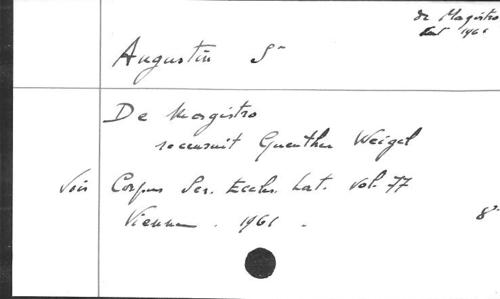 de Magistro
1961
Augustin St
De Magistro
recensuit Guenther Weigel
Voir Corpus Scr. Eccles. Lat. vol. 77
Vienne . 1961 .
8°